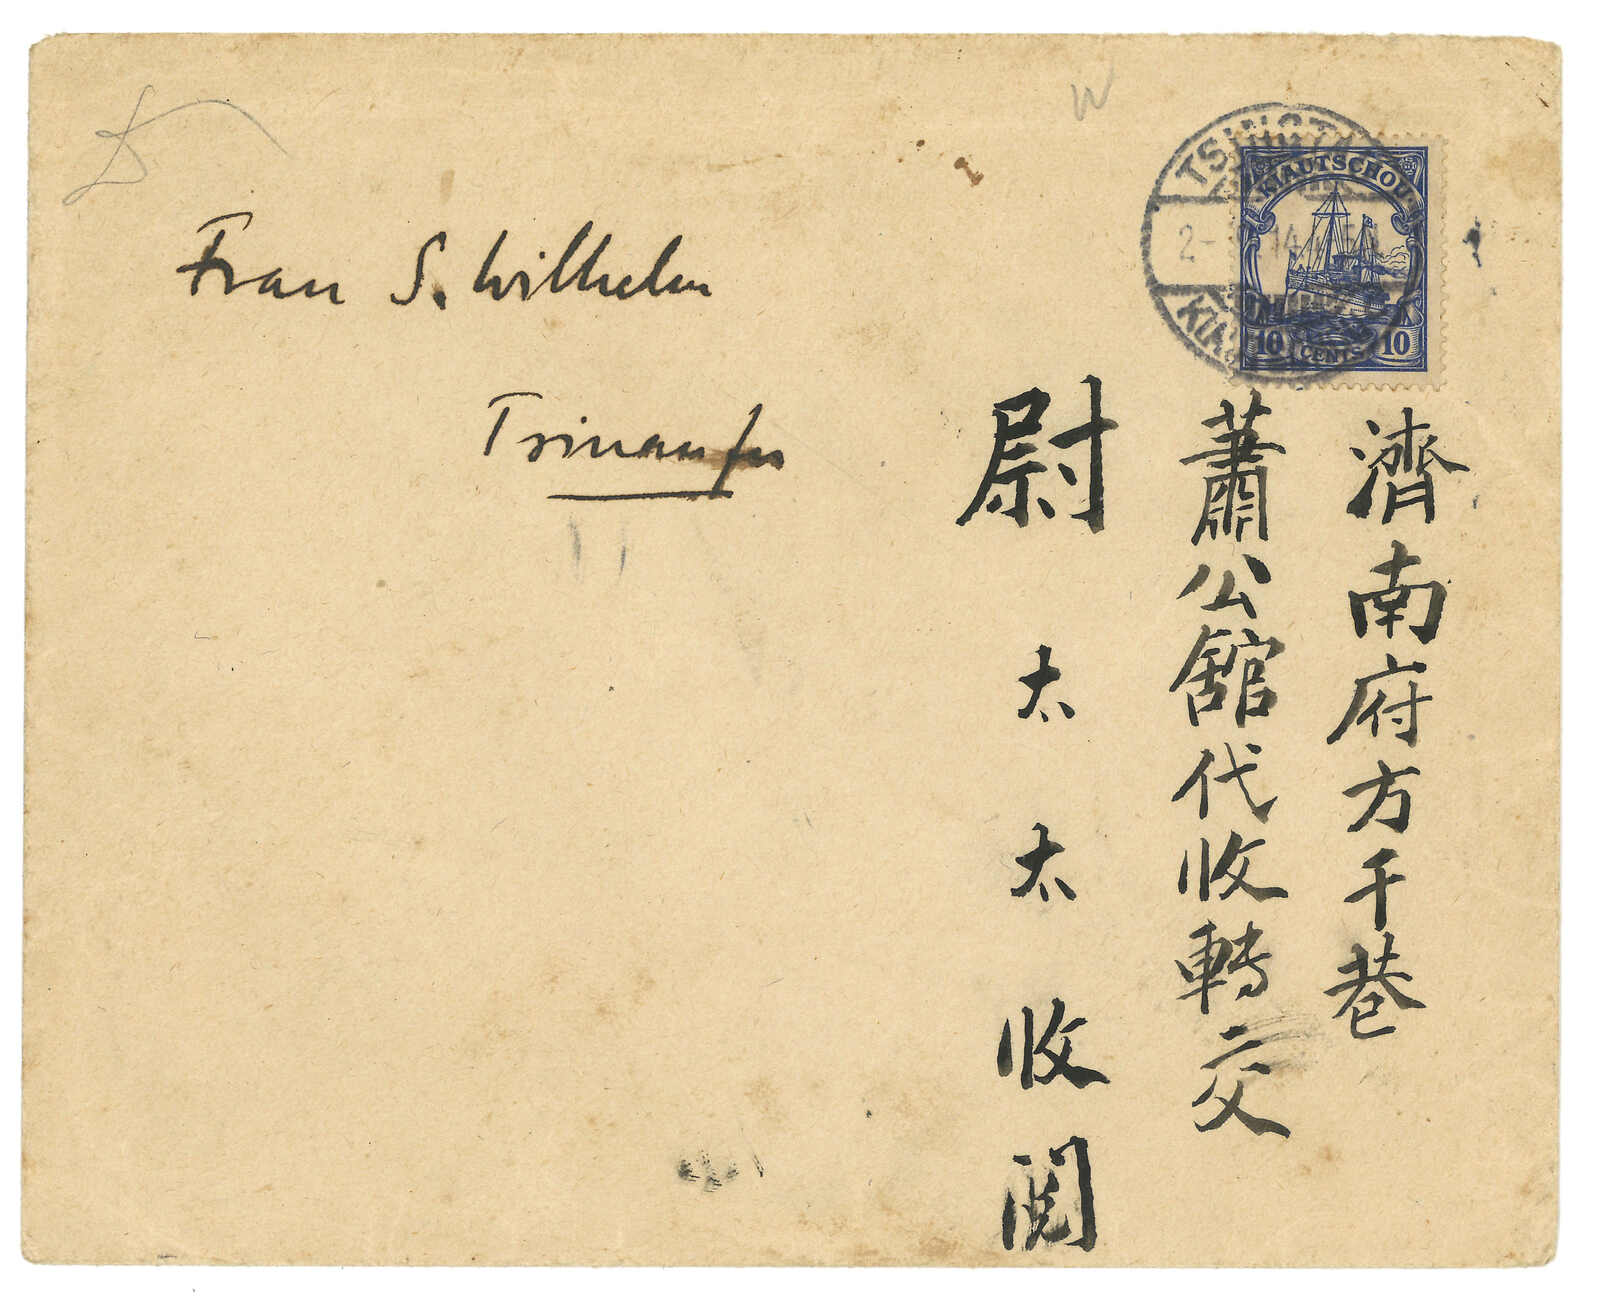 Frau S. Wilhelm
Tsinanfu
KIAUTSCHOU
10 CENTS 10
濟南府方千巷
蕭公舘代收轉交
尉太太收閱